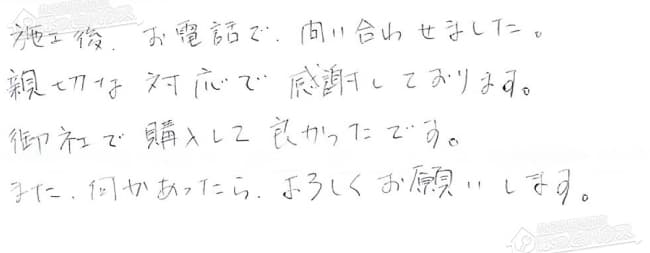 施工後、お電話で、問い合わせました。
親切な対応で感謝しております。
御社で購入して良かったです。
また、何かあったら、よろしくお願いします。